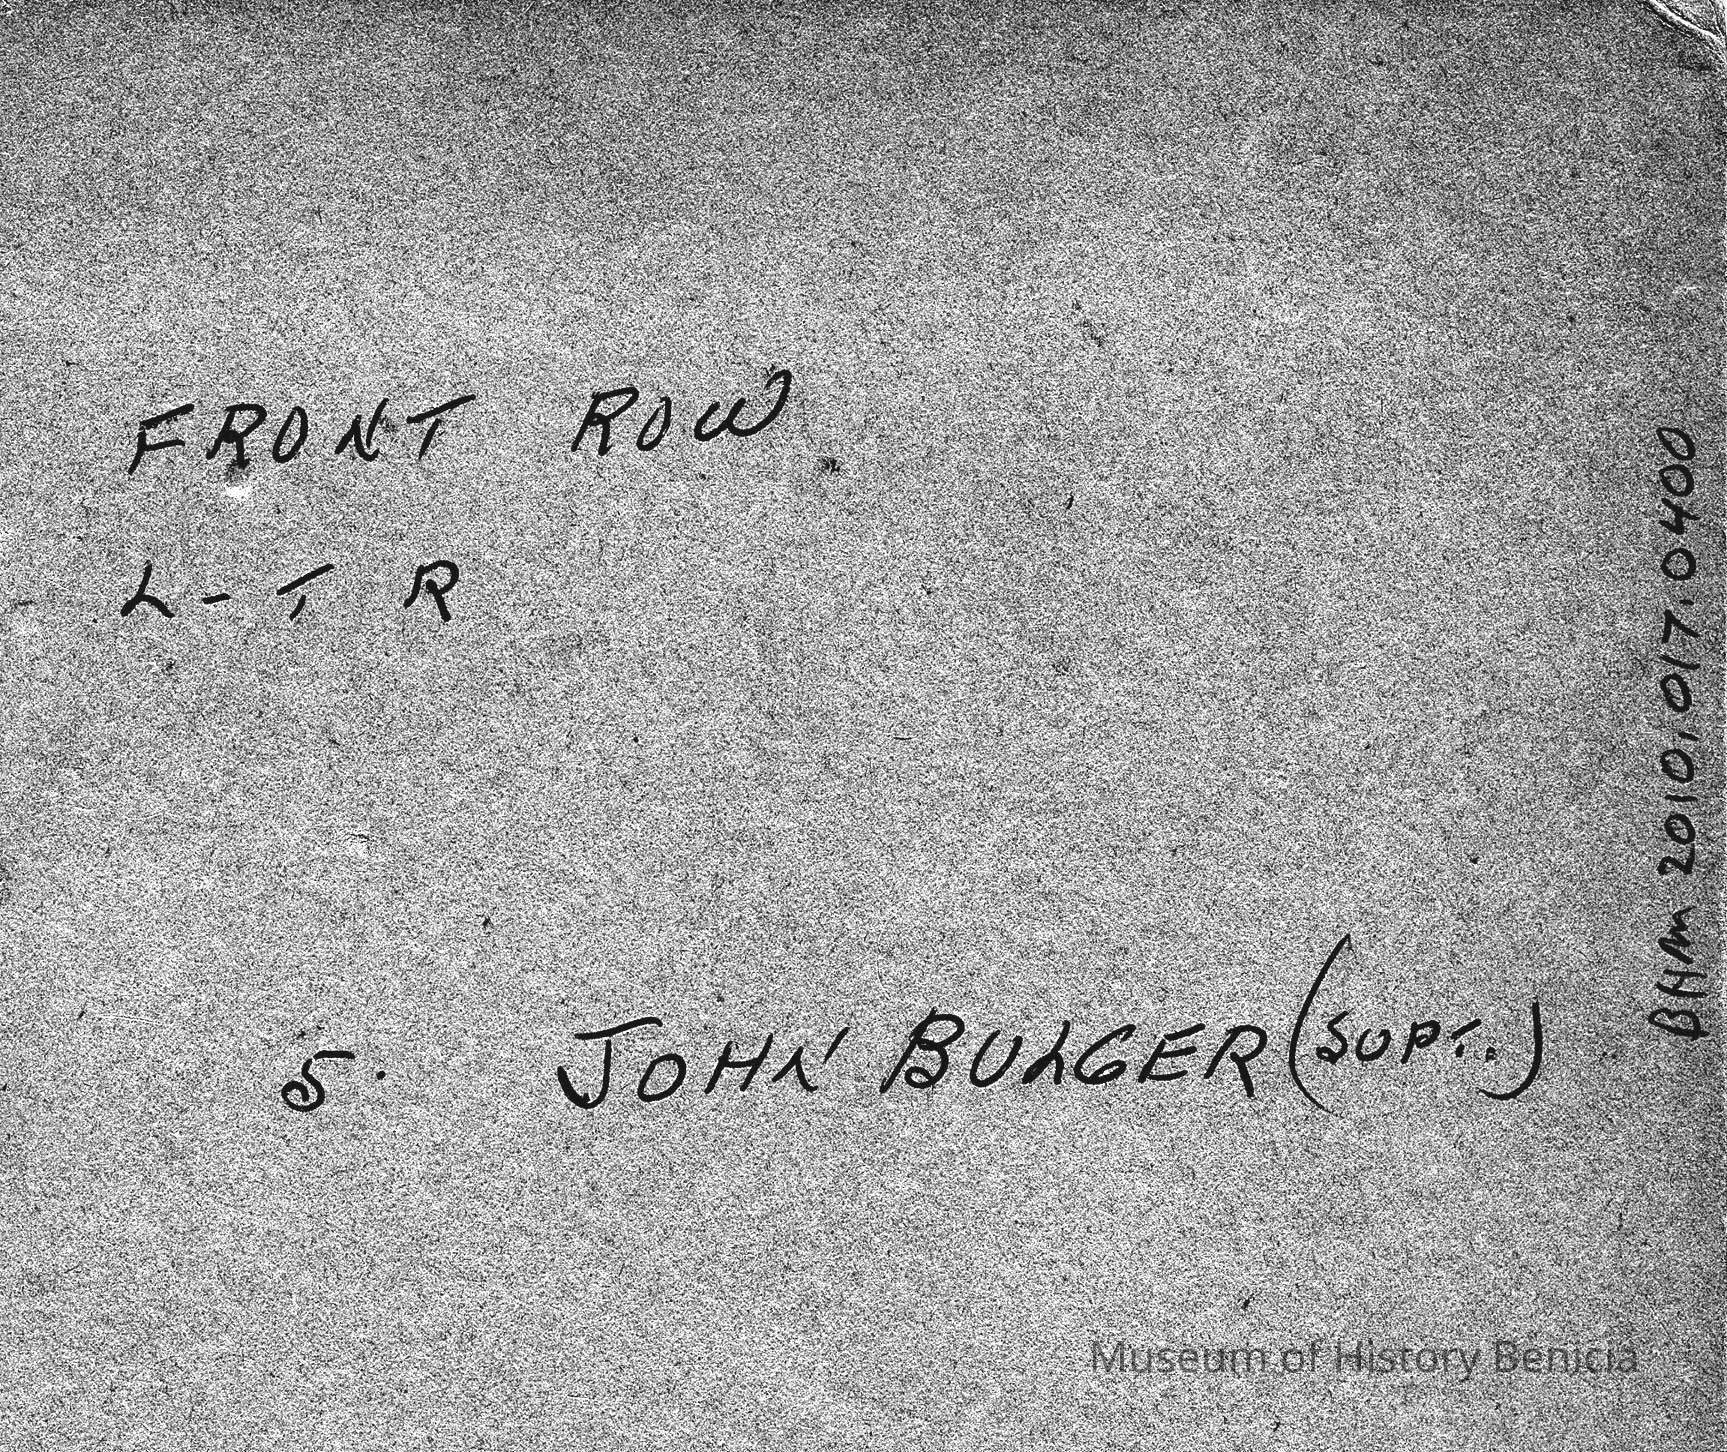 FRONT ROW
L - T R
5. JOHN BULGER (SUPT.)
BHM 2010.017.0400
Museum of History Benicia